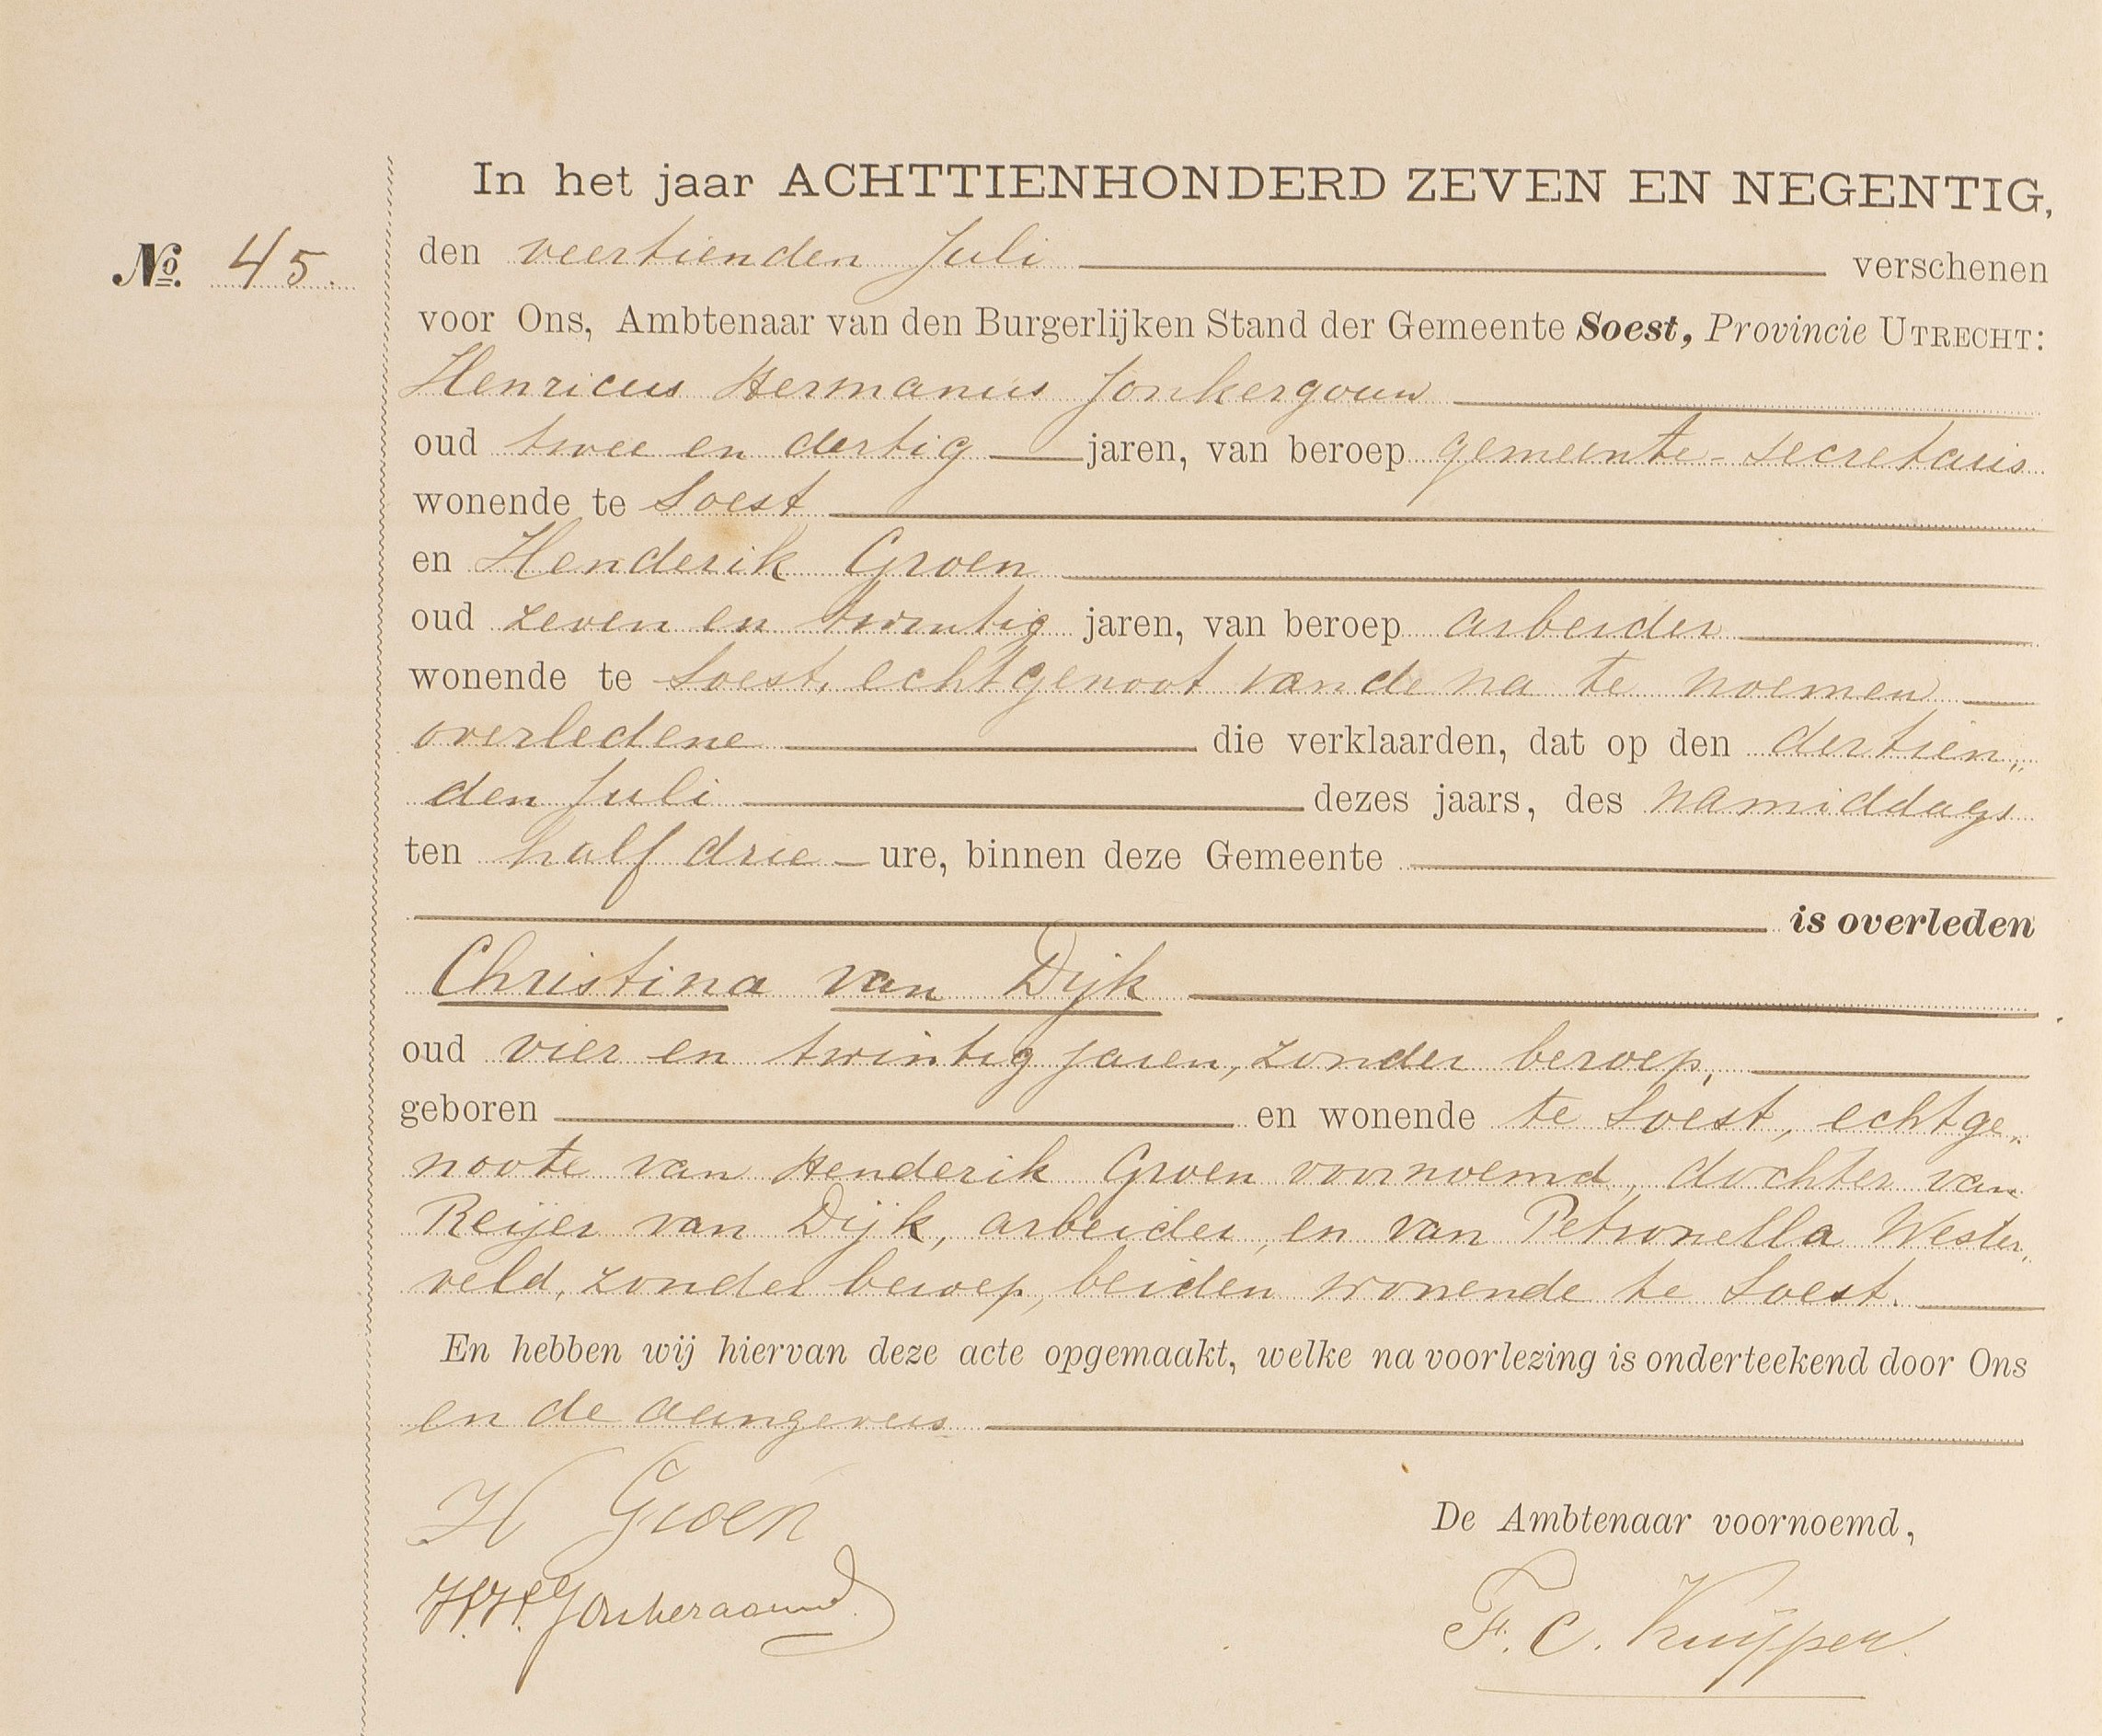 In het jaar ACHTTIENHONDERD ZEVEN EN NEGENTIG,
No. 45.
den veertienden Juli verschenen
voor Ons, Ambtenaar van den Burgerlijken Stand der Gemeente Soest, Provincie UTRECHT:
Henricus Hermanus Jonkergouw
oud twee en dertig jaren, van beroep gemeente-secretaris
wonende te Soest
en Henderik Groen
oud zeven en twintig jaren, van beroep arbeider
wonende te Soest, echtgenoot van de na te noemen
overledene die verklaarden, dat op den dertien„
den Juli dezes jaars, des namiddags
ten half drie ure, binnen deze Gemeente
is overleden
Christina van Dijk
oud vier en twintig jaren, zonder beroep,
geboren en wonende te Soest, echtge„
noote van Henderik Groen voornoemd, dochter van
Reijer van Dijk, arbeider, en van Petronella Wester„
veld, zonder beroep, beiden wonende te Soest.
En hebben wij hiervan deze acte opgemaakt, welke na voorlezing is onderteekend door Ons
en de aangevers
H Groen
De Ambtenaar voornoemd,
H.H. Jonkergouw
F. C. Kuijper.